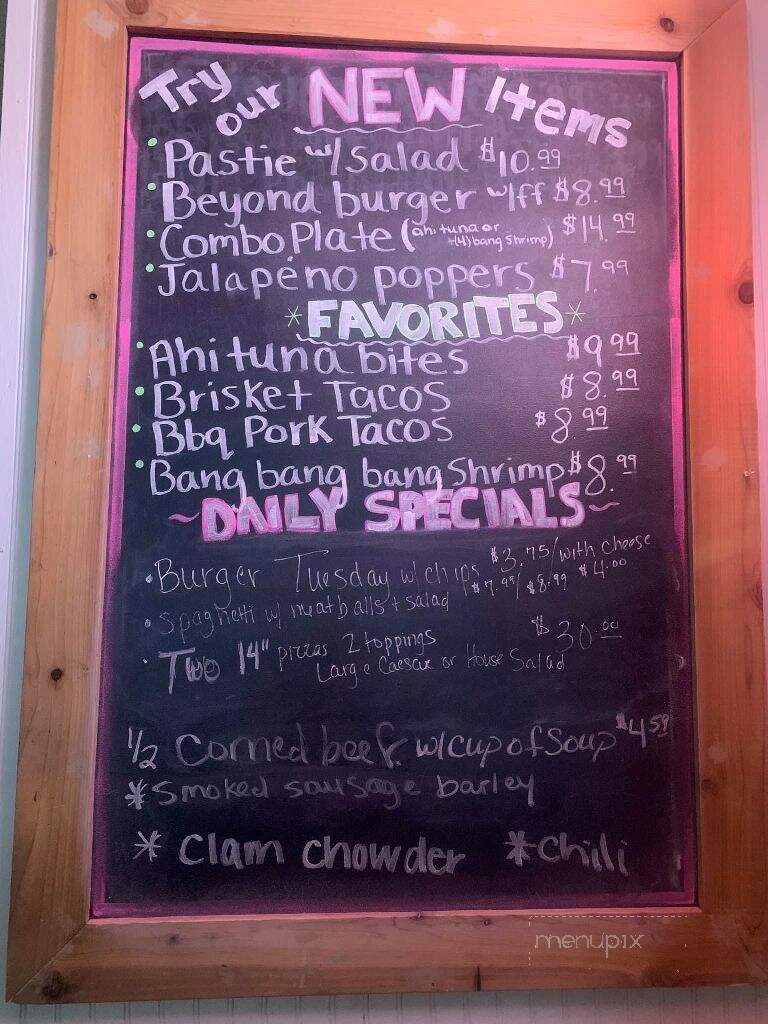 Try our NEW Items
• Pastie w/ Salad $10.99
• Beyond burger w/ff $8.99
• Combo Plate (ahi tuna or +(4) bang shrimp) $14.99
• Jalapeno poppers $7.99
*FAVORITES*
• Ahi tuna bites $9.99
• Brisket Tacos $8.99
• Bbq Pork Tacos $8.99
• Bang bang bang Shrimp $8.99
~DAILY SPECIALS~
• Burger Tuesday w/ chips $3.75/with cheese $4.00
• Spaghetti w/ meatballs + salad $7.99/$8.99
• Two 14" pizzas 2 toppings $30.00
Large Caesar or House Salad
1/2 Corned beef w/ cup of Soup $4.59
* Smoked sausage barley
* Clam chowder * Chili
menupix